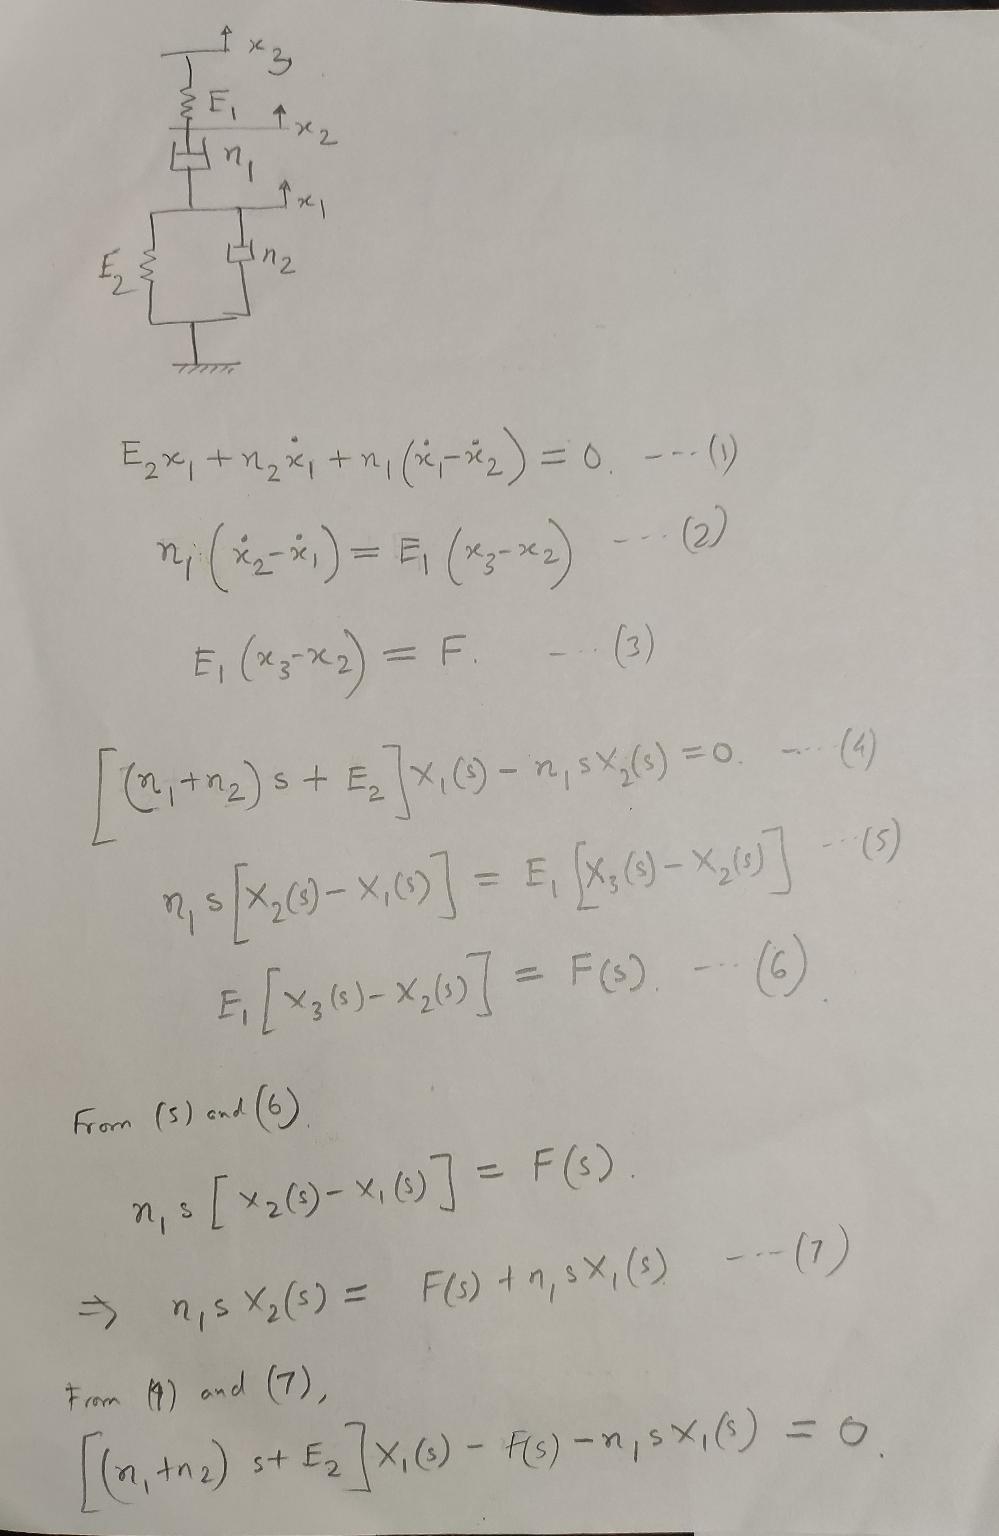 x₃
E₁
x₂
n₁
x₁
E₂
n₂
E₂x₁ + n₂ẋ₁ + n₁(ẋ₁-ẋ₂) = 0. ---(1)
n₁(ẋ₂-ẋ₁) = E₁(x₃-x₂) ---(2)
E₁(x₃-x₂) = F. ---(3)
[(n₁+n₂)s + E₂]X₁(s) - n₁sX₂(s) = 0. ---(4)
n₁s[X₂(s) - X₁(s)] = E₁[X₃(s) - X₂(s)] ---(5)
E₁[X₃(s) - X₂(s)] = F(s). ---(6)
From (5) and (6).
n₁s[X₂(s) - X₁(s)] = F(s).
⇒ n₁sX₂(s) = F(s) + n₁sX₁(s) ---(7)
From (4) and (7),
[(n₁+n₂)s + E₂]X₁(s) - F(s) - n₁sX₁(s) = 0.